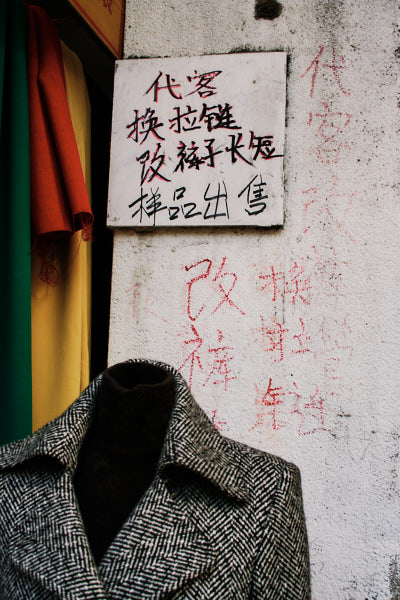 代客
换拉链
改裤子长短
样品出售
代客
改
改裤
换拉链